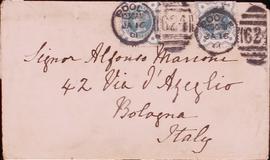 POOLE
JA 16
01
624
POOLE
JA 16
01
624
Signor Alfonso Marconi
42 Via d'Azeglio
Bologna
Italy